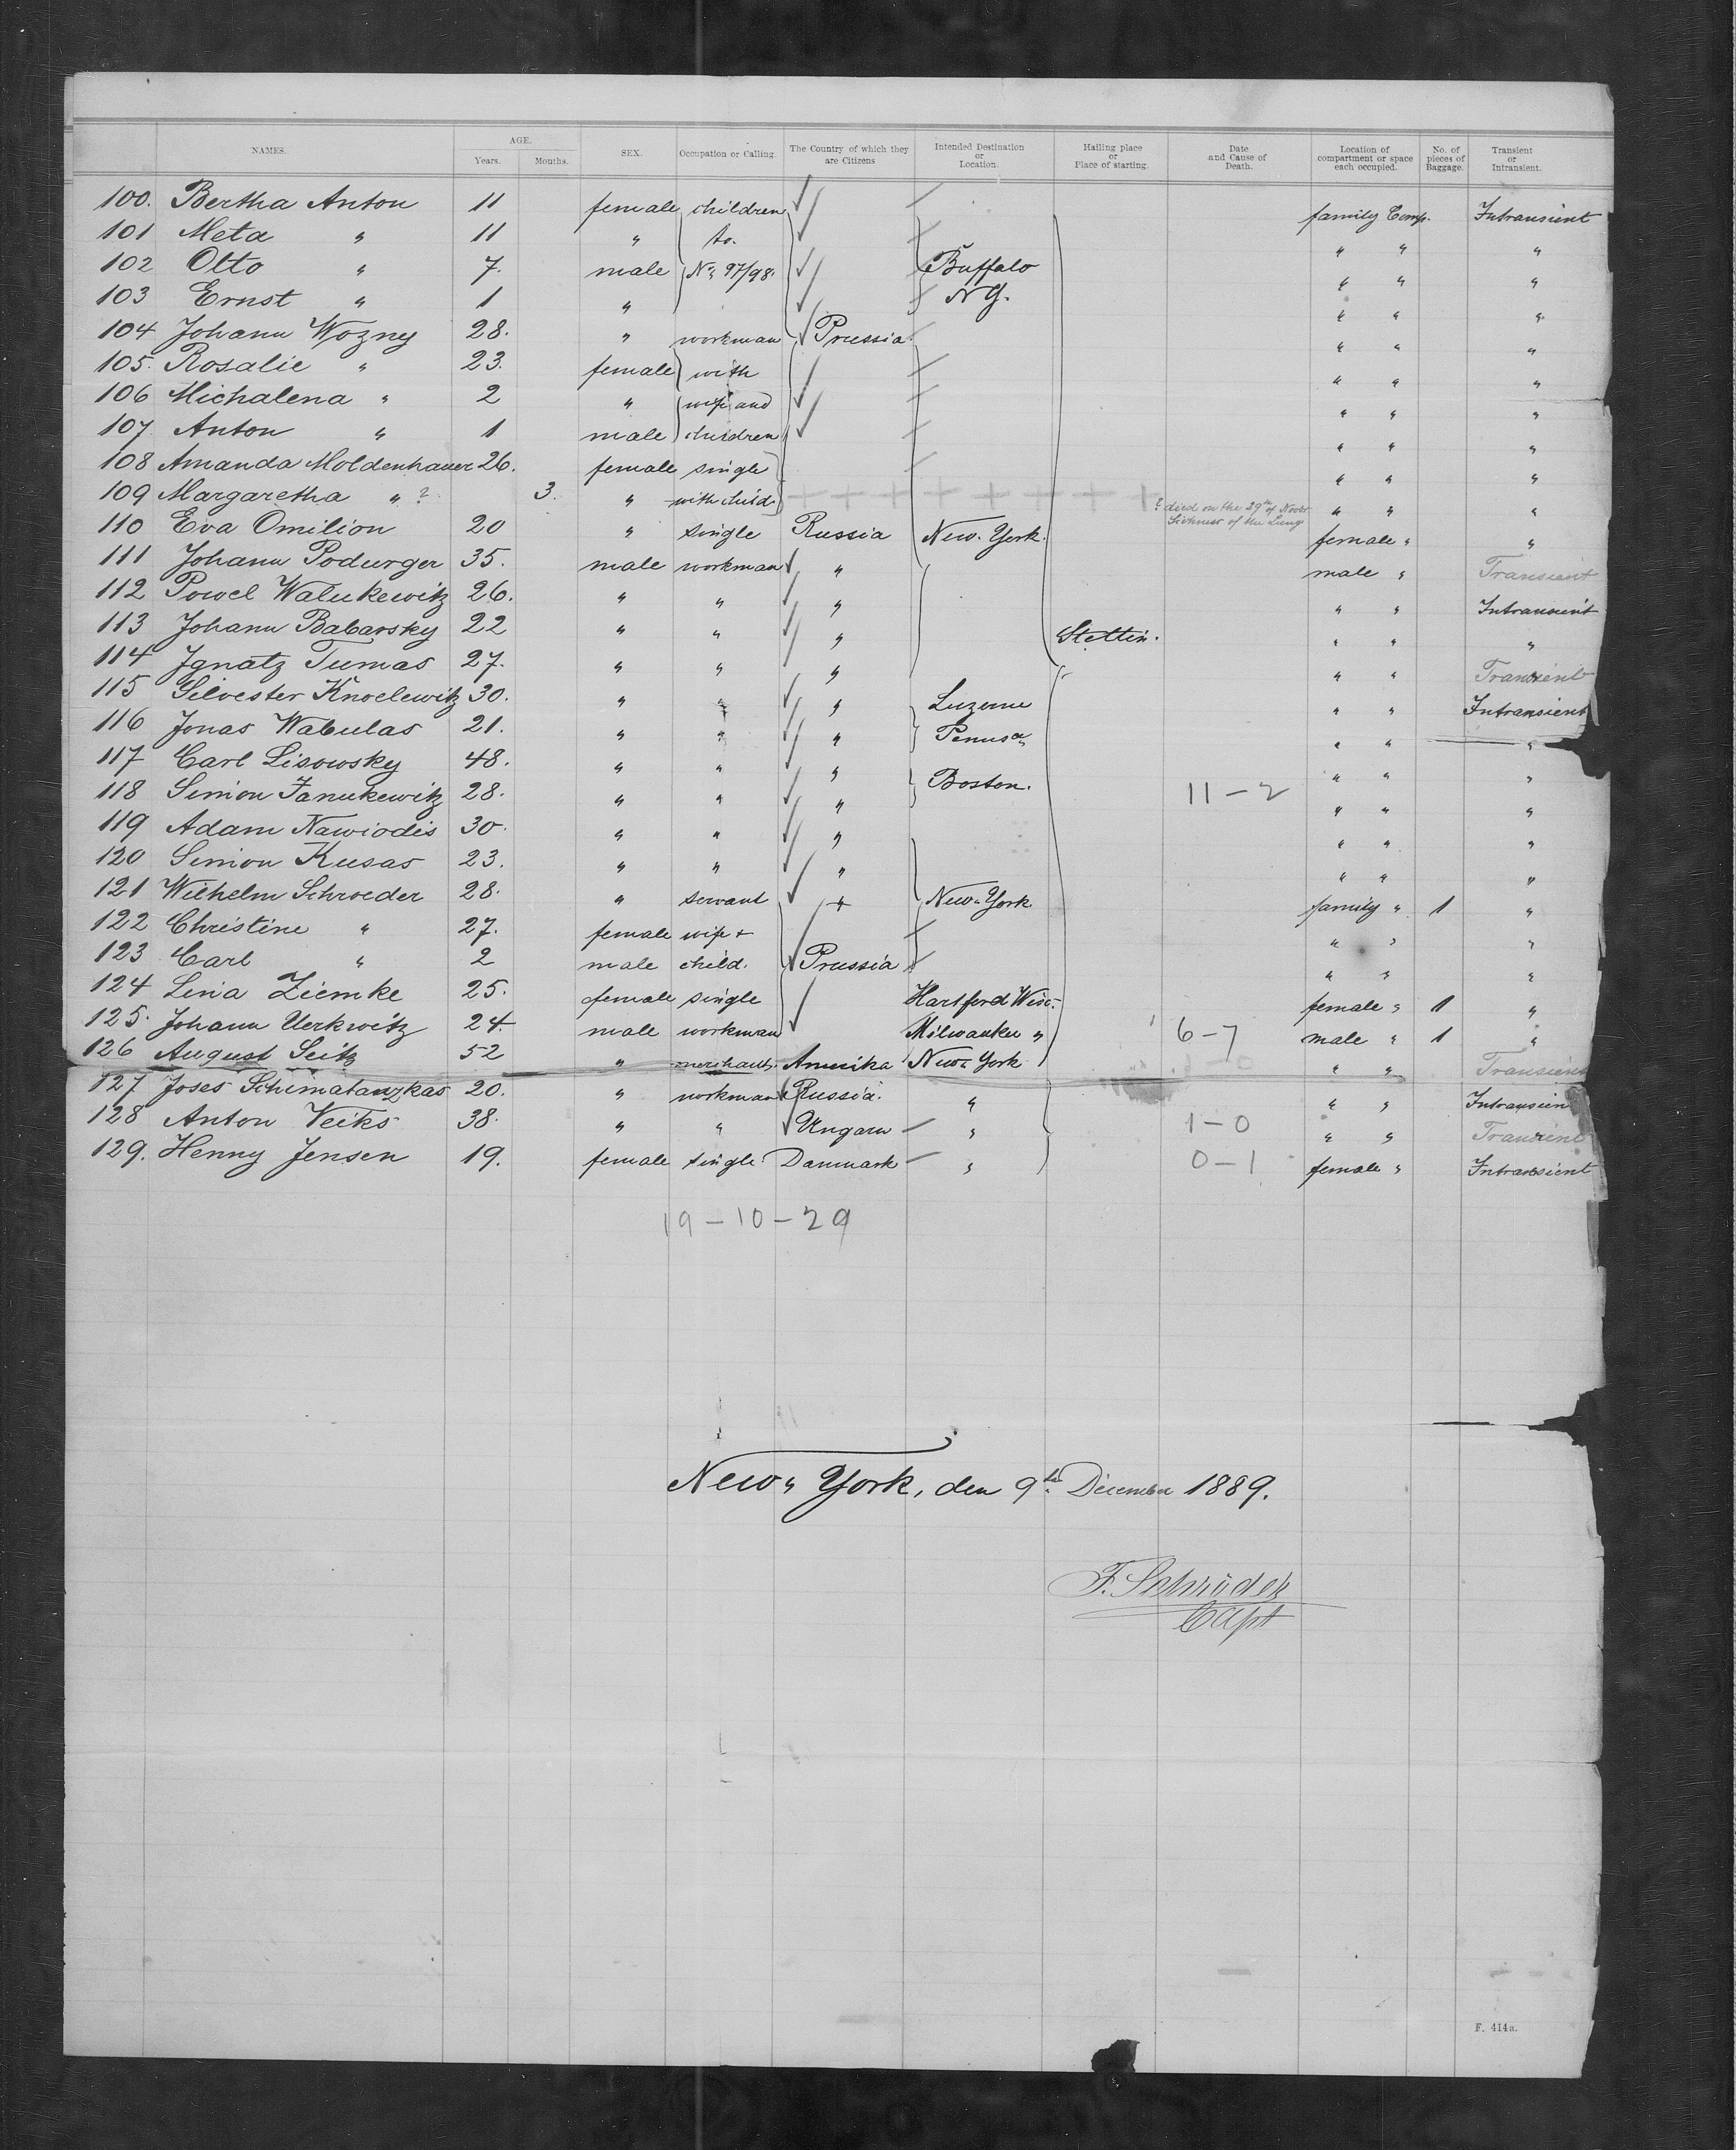 NAMES. AGE. Years. Months. SEX. Occupation or Calling. The Country of which they are Citizens Intended Destination or Location. Hailing place or Place of starting. Date and Cause of Death. Location of compartment or space each occupied. No. of pieces of Baggage. Transient or Intransient.
100. Bertha Anton 11 female children family Comp. Intransient
101 Meta " 11 " to. " " "
102 Otto " 7. male No 97/98. Buffalo " " "
103 Ernst " 1 " N Y. " " "
104 Johann Wozny 28. " workman Prussia. " " "
105. Rosalie " 23. female with " " "
106 Michalena " 2 " wife and " " "
107. Anton " 1 male children " " "
108 Amanda Moldenhauer 26. female single " " "
109 Margaretha " ? 3. " with child + + + + + + + + ? died on the 29th of Novbr. Sickness of the Lung " " "
110 Eva Omilion 20 " single Russia New-York. female " "
111 Johann Podurger 35. male workman " male " Transient
112 Powel Walukewitz 26. " " " " " Intransient
113 Johann Babarsky 22 " " " Stettin. " " "
114 Ignatz Tumas 27. " " " " " Transient
115 Silvester Knoelewitz 30. " " " Luzerne " " Intransient
116 Jonas Wabulas 21. " " " Pennsa " " "
117 Carl Lisowsky 48. " " " Boston. " " "
118 Simion Janukewitz 28. " " " 11-2 " " "
119 Adam Nawiodis 30. " " " " " "
120 Simion Kusas 23. " " " " " "
121 Wilhelm Schroeder 28. " servant + New-York family " 1 "
122 Christine " 27. female wife + " " "
123 Carl " 2 male child. Prussia " " "
124 Lina Ziemke 25. female single Hartford Wisc. female " 1 "
125. Johann Uerkwitz 24. male workman Milwaukee " 6-7 male " 1 "
126 August Seitz 52 " merchant. Amerika New-York " " Transient
127 Joses Schimatanzkas 20. " workman Russia. " " " Intransient
128 Anton Veiks 38. " " Ungarn " 1-0 " " Transient
129. Henny Jensen 19. female single Danmark " 0-1 female " Intransient
19-10-29
New-York, den 9th December 1889.
F. Schröder
Capt
F. 414a.